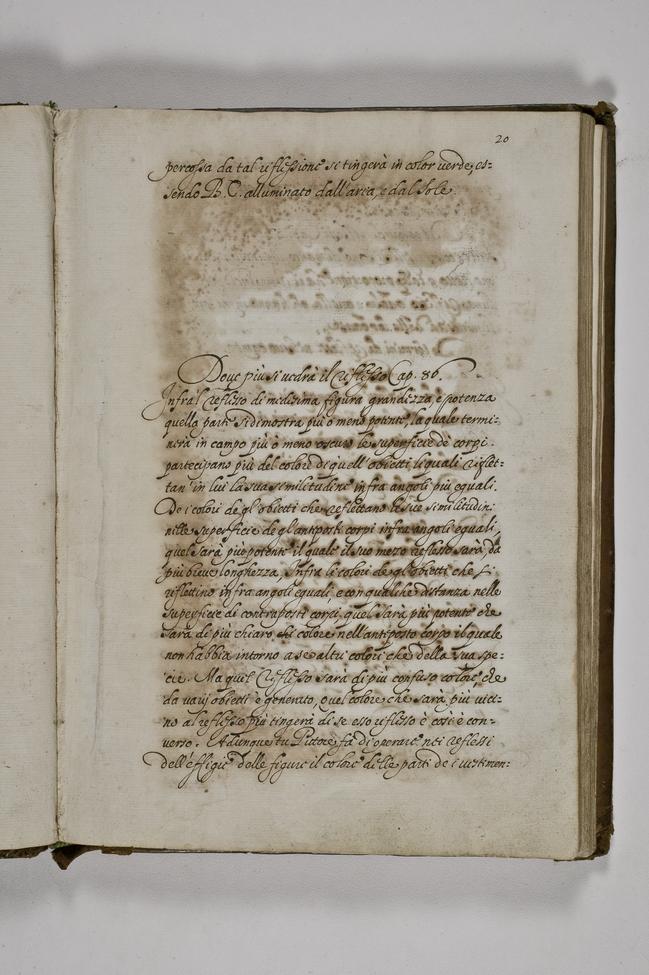 20
percossa da tal riflessione si tingerà in color verde, es=
sendo B. C. alluminato dall'aria, e dal Sole.
Doue piu si uedrà il Riflesso Cap. 86.
Infra'l reflesso di medesima figura grandezza e potenza
quella parte si dimostra più o meno potente, la quale termi=
nerà in campo più o meno oscuro le superficie de corpi
partecipano più del colore di quell'obietti li quali riflet=
tan in lui la sua similitudine infra angoli più equali.
De i colori de gl'obietti che reflettano le sue similitudin
nelle superficie de gl'antposti corpi infra angoli equali
quel sarà piu potente il quale il suo mezo reflesso sarà da
più breue longhezza. Infra li colori de gl'obietti che si
riflettino infra angoli equali e con qualche distanza nelle
superficie di contraposti corpi, quel sarà più potente che
sarà di più chiaro colore nell'antiposto corpo il quale
non habbia intorno a se altri colori che della sua spe:
cie. Ma quel Riflesso sarà di più confuso colore, che
da varij obietti è generato, quel colore che sarà più uici=
no al reflesso più tingerà di se esso riflesso è così è con=
uerso. Adunque tu Pittore fa di operare nei reflessi
dell'effigie delle figure il colore delle parti de i uestimen: